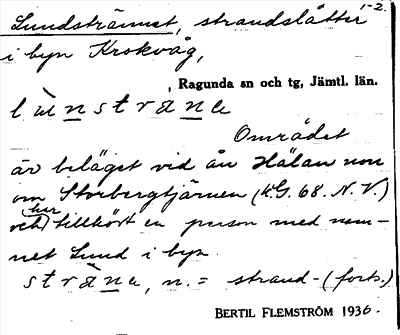 1-2.
Lundstrännet, strandslåtter
i byn Krokvåg,
, Ragunda sn och tg, Jämtl. län.
lùnstrana
Området
är beläget vid ån Hälan norr
om Storbergtjärnen (K.G. 68. N.V.)
och har tillhört en person med nam-
net Lund i byn.
stràna, n. = strand- (forts.)
BERTIL FLEMSTRÖM 1936.